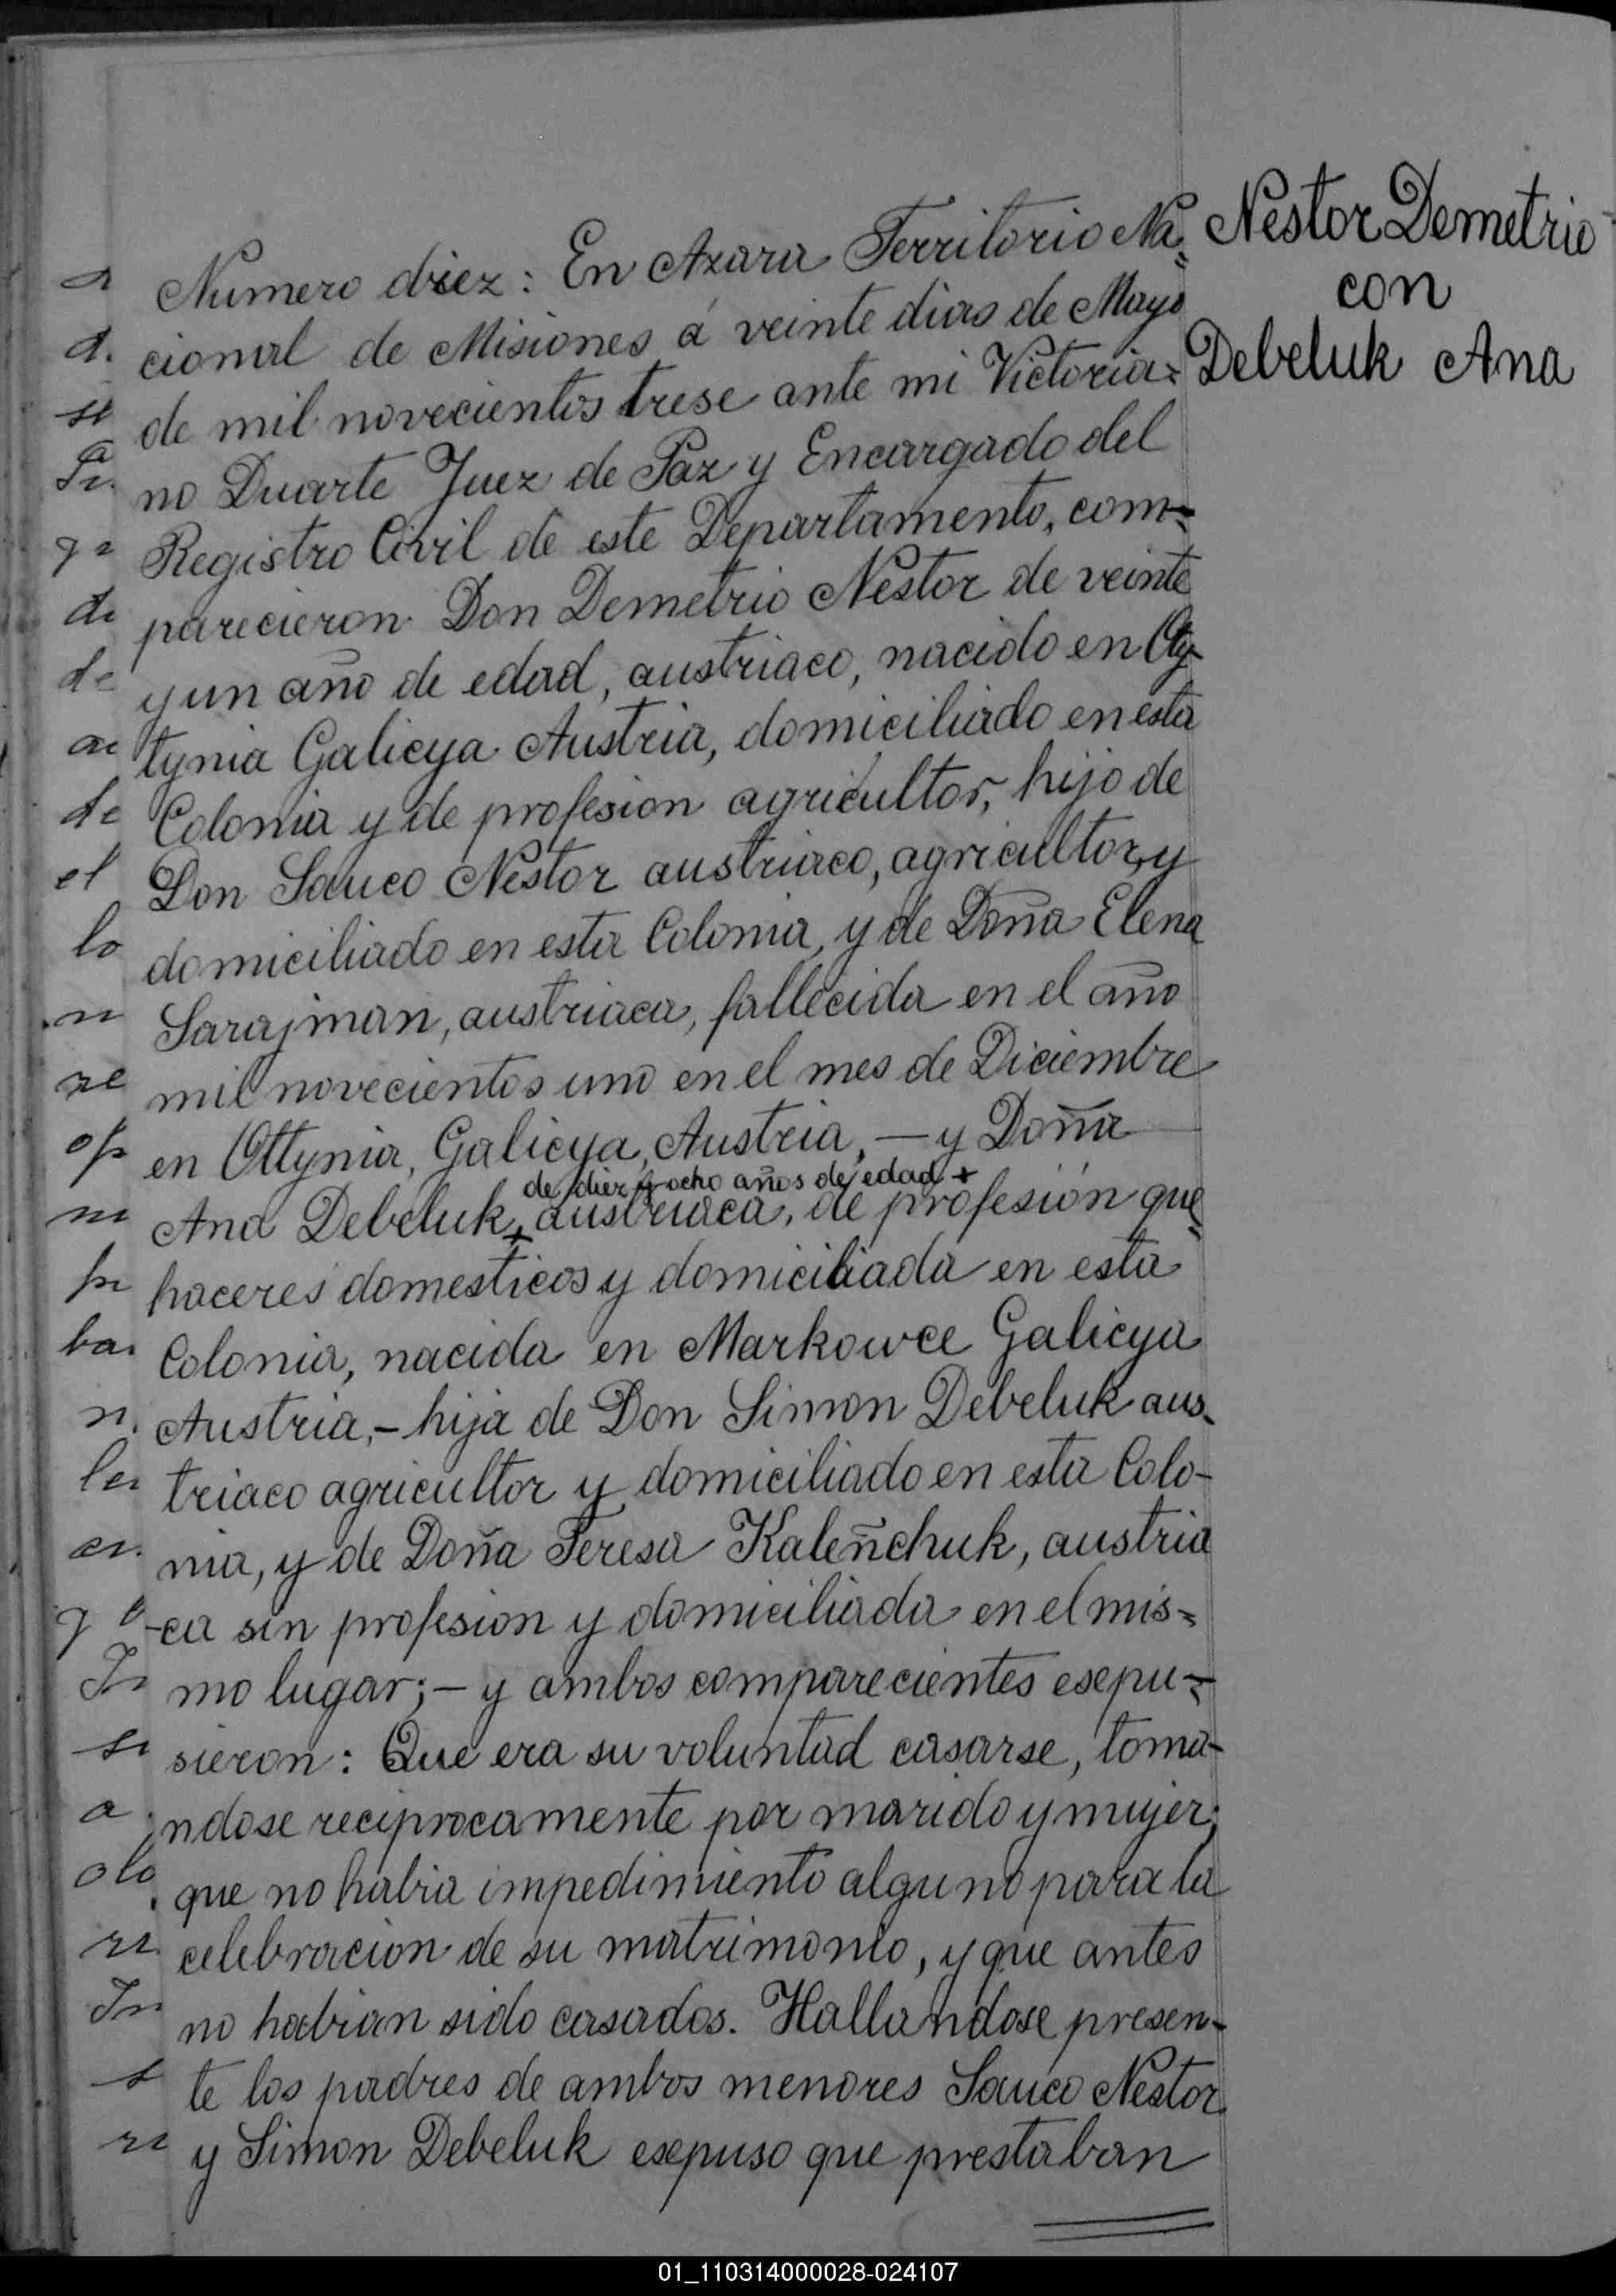 Nestor Demetrio
con
Debeluk Ana
Numero diez: En Azara Territorio Na=
cional de Misiones á veinte dias de Mayo
de mil novecientos trese ante mi Victoria=
no Duarte Juez de Paz y Encargado del
Registro Civil de este Departamento, com=
parecieron Don Demetrio Nestor de veinte
y un año de edad, austriaco, nacido en Oty
tynia Galicya Austria, domiciliado en esta
Colonia y de profesion agricultor, hijo de
Don Sauco Nestor austriaco, agricultor, y
domiciliado en esta Colonia, y de Doña Elena
Sarajman, austriaca, fallecida en el año
mil novecientos uno en el mes de Diciembre
en Ottynia, Galicya, Austria, — y Doña
de diez y ocho años de edad +
Ana Debeluk,+ austriaca, de profesión que=
haceres domesticos y domiciliada en esta
Colonia, nacida en Markowce Galicya
Austria, - hija de Don Simon Debeluk aus-
triaco agricultor y domiciliado en esta Colo-
nia, y de Doña Teresa Kaleñchuk, austria
-ca sin profesion y domiciliada en el mis=
mo lugar; - y ambos comparecientes esepu=
sieron: Que era su voluntad casarse, toma-
ndose reciprocamente por marido y mujer;
que no habia impedimiento alguno para la
celebracion de su matrimonio, y que antes
no habian sido casados. Hallandose presen-
te los padres de ambos menores Sauco Nestor
y Simon Debeluk esepuso que prestaban
01_110314000028-024107